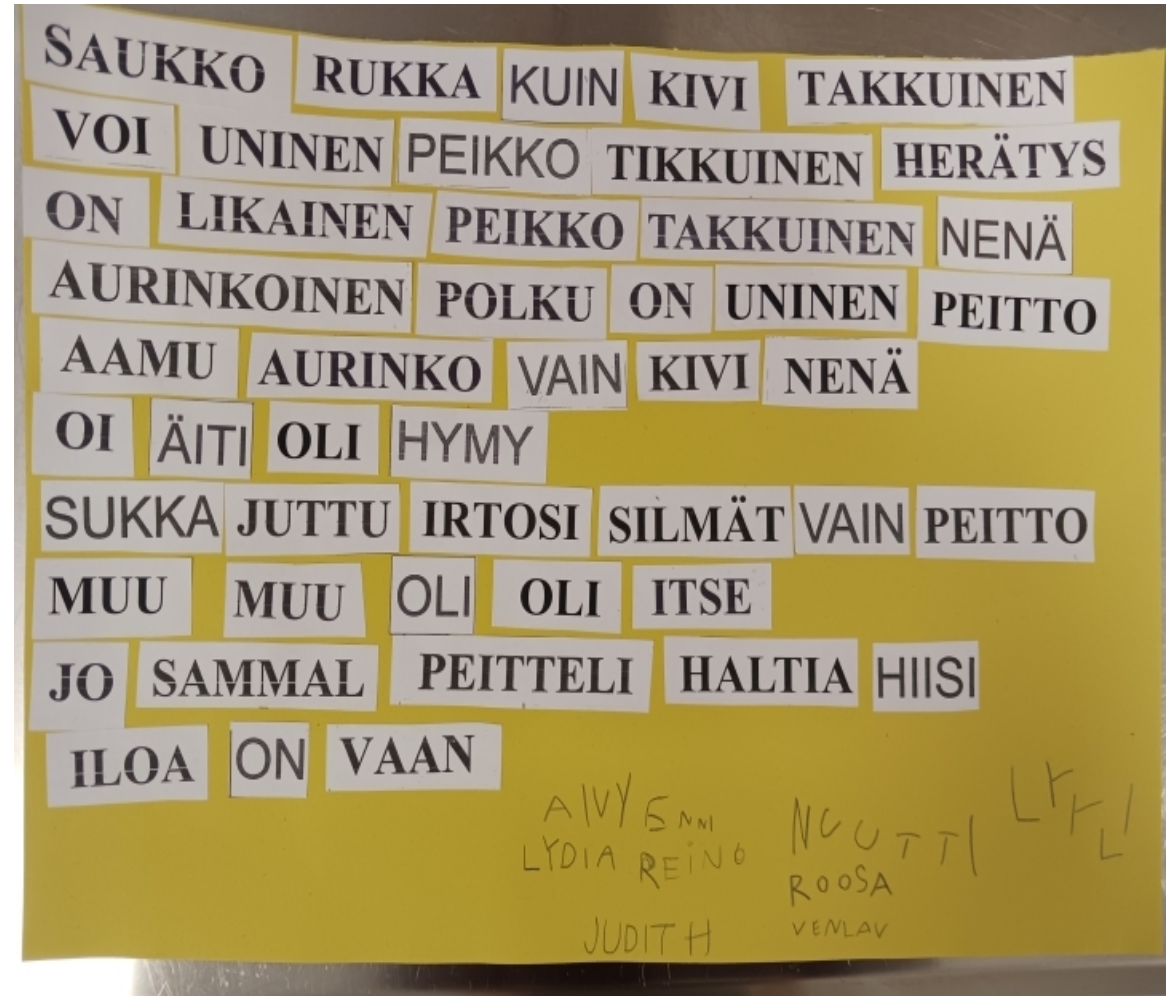 SAUKKO RUKKA KUIN KIVI TAKKUINEN
VOI UNINEN PEIKKO TIKKUINEN HERÄTYS
ON LIKAINEN PEIKKO TAKKUINEN NENÄ
AURINKOINEN POLKU ON UNINEN PEITTO
AAMU AURINKO VAIN KIVI NENÄ
OI ÄITI OLI HYMY
SUKKA JUTTU IRTOSI SILMÄT VAIN PEITTO
MUU MUU OLI OLI ITSE
JO SAMMAL PEITTELI HALTIA HIISI
ILOA ON VAAN
NUUTTI
LYDIA REINO
ROOSA
JUDITH
VENLAV